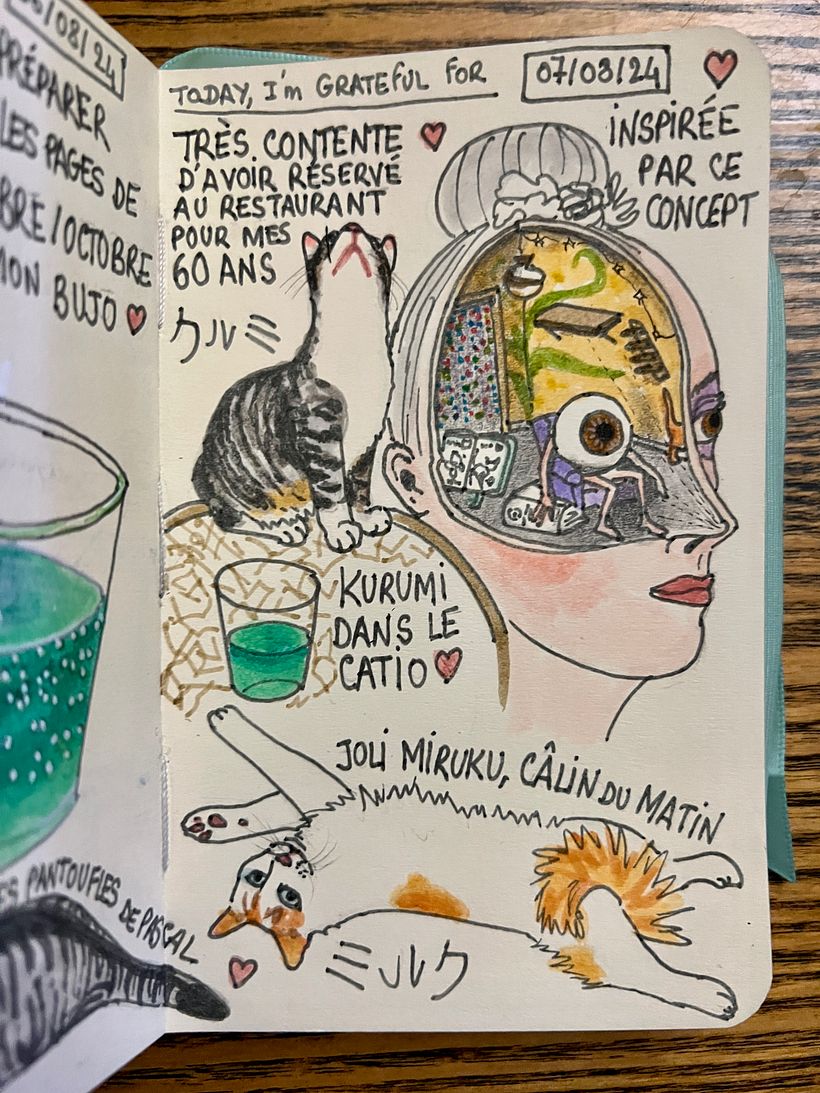 /08/24
PRÉPARER
LES PAGES DE
BRE/OCTOBRE
MON BUJO
ES PANTOUFLES DE PASCAL
TODAY, I'm GRATEFUL FOR
07/08/24
TRÈS CONTENTE
D'AVOIR RÉSERVÉ
AU RESTAURANT
POUR MES
60 ANS
クルミ
iNSPIRÉE
PAR CE
CONCEPT
KURUMi
DANS LE
CATiO
JOLi MiRUKU, CÂLiN DU MATiN
ミルク